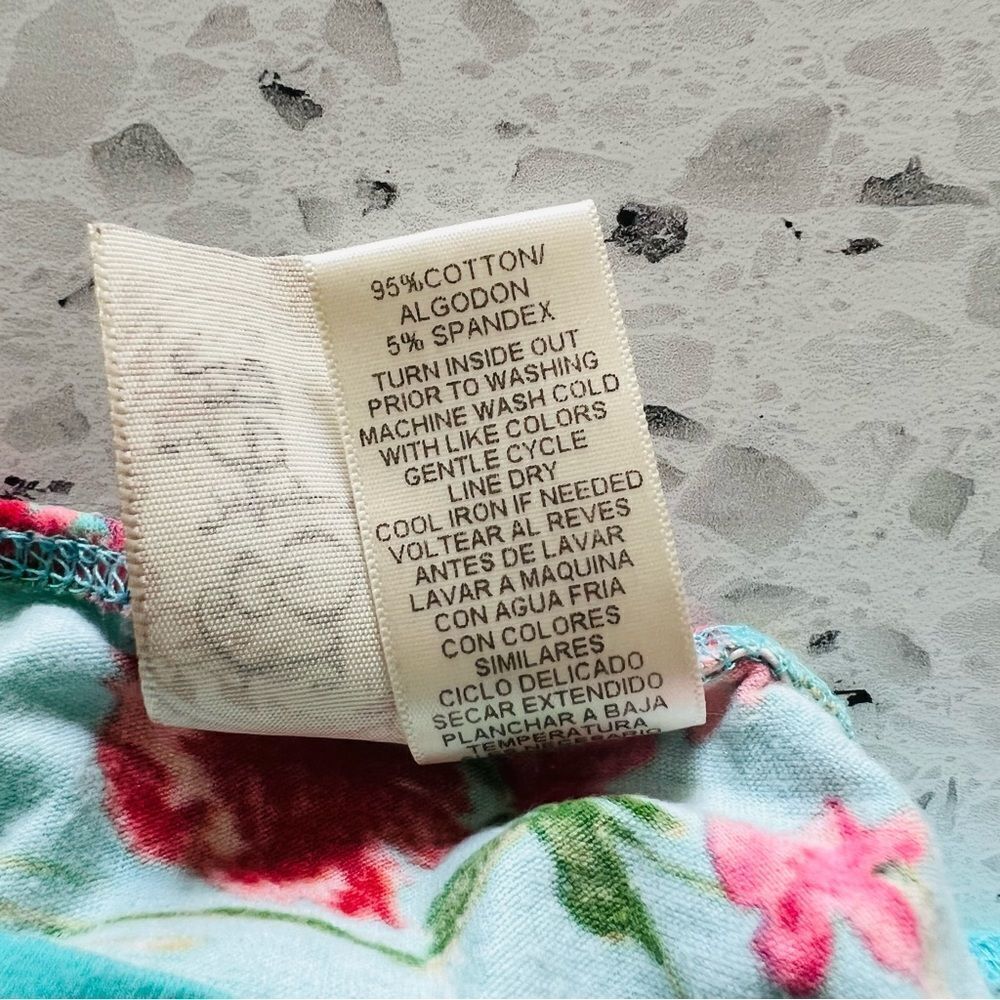 95%COTTON/
ALGODON
5% SPANDEX
TURN INSIDE OUT
PRIOR TO WASHING
MACHINE WASH COLD
WITH LIKE COLORS
GENTLE CYCLE
LINE DRY
COOL IRON IF NEEDED
VOLTEAR AL REVES
ANTES DE LAVAR
LAVAR A MAQUINA
CON AGUA FRIA
CON COLORES
SIMILARES
CICLO DELICADO
SECAR EXTENDIDO
PLANCHAR A BAJA
TEMPERATURA